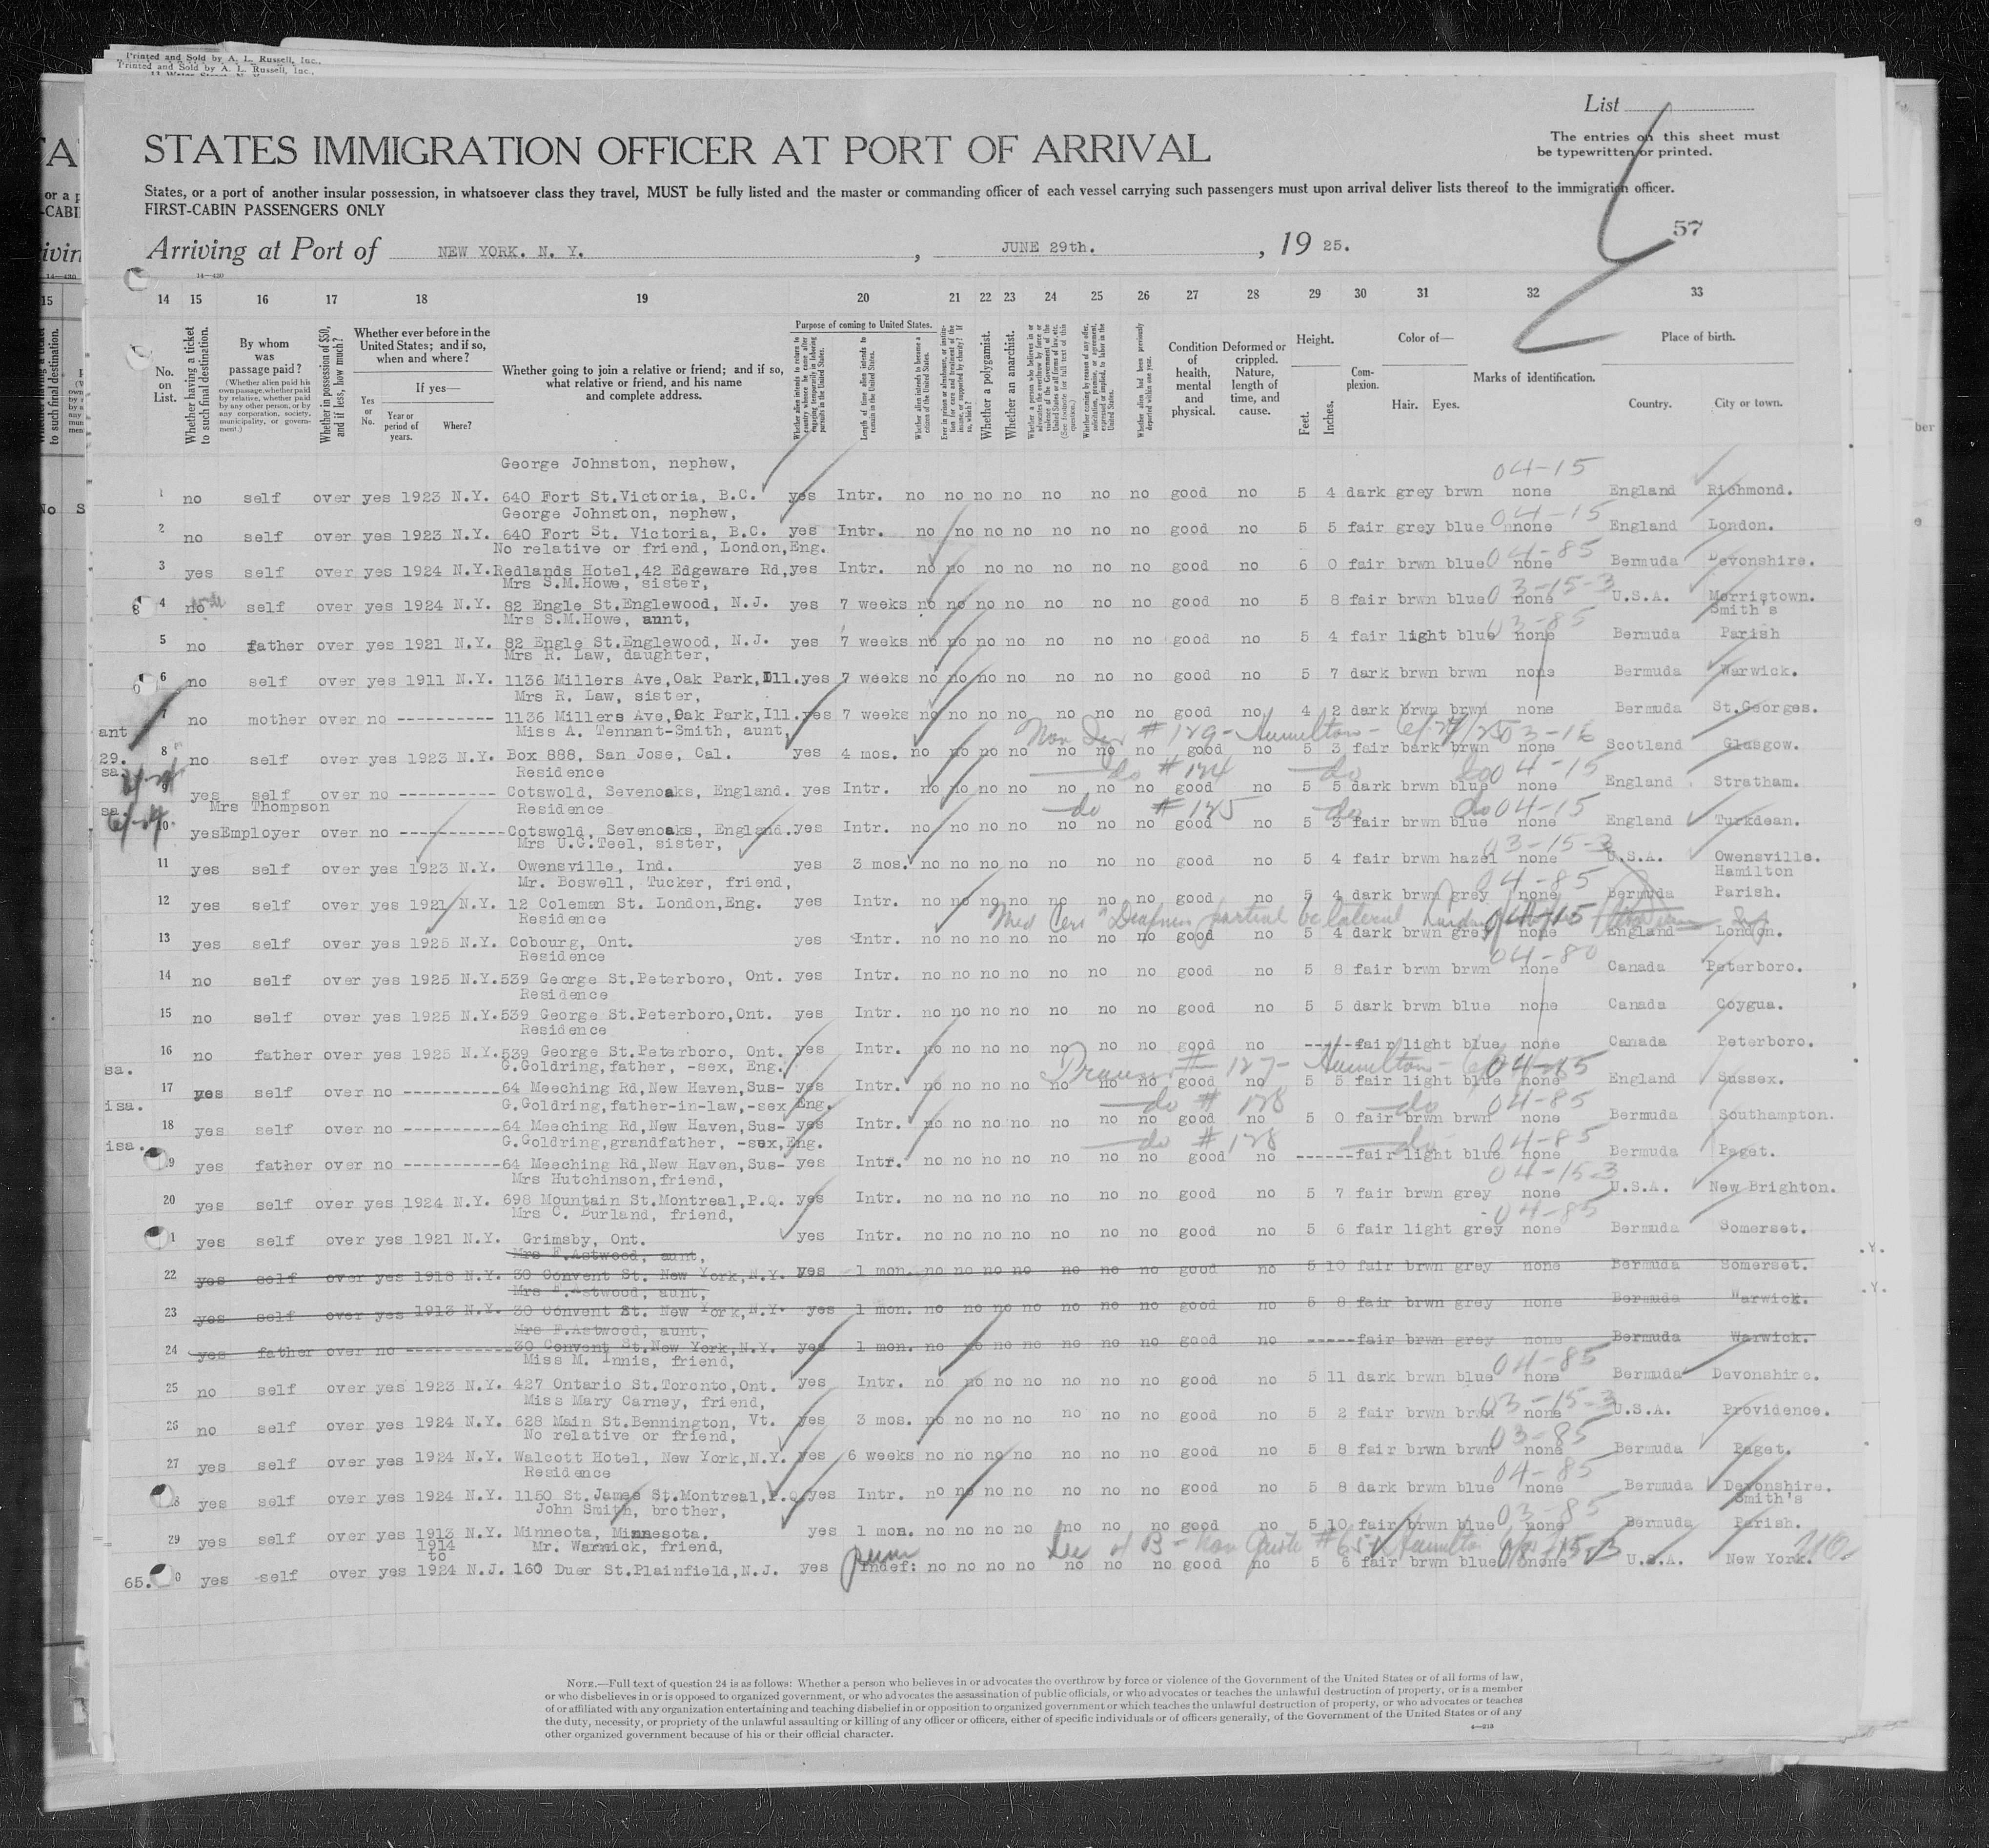 Printed and Sold by A. L. Russell, Inc.,
Printed and Sold by A. L. Russell, Inc.,
List
The entries on this sheet must
be typewritten or printed.
STATES IMMIGRATION OFFICER AT PORT OF ARRIVAL
States, or a port of another insular possession, in whatsoever class they travel, MUST be fully listed and the master or commanding officer of each vessel carrying such passengers must upon arrival deliver lists thereof to the immigration officer.
FIRST-CABIN PASSENGERS ONLY
57
Arriving at Port of NEW YORK. N. Y. , JUNE 29th. , 19 25.
14—430
14 15 16 17 18 19 20 21 22 23 24 25 26 27 28 29 30 31 32 33
No. on List.
Whether having a ticket to such final destination.
By whom was passage paid?
(Whether alien paid his own passage, whether paid by relative, whether paid by any other person, or by any corporation, society, municipality, or government.)
Whether in possession of $50, and if less, how much?
Whether ever before in the United States; and if so, when and where?
If yes—
Yes or No.
Year or period of years.
Where?
Whether going to join a relative or friend; and if so, what relative or friend, and his name and complete address.
Purpose of coming to United States.
Whether alien intends to return to country whence he came after engaging temporarily in laboring pursuits in the United States.
Length of time alien intends to remain in the United States.
Whether alien intends to become a citizen of the United States.
Whether a polygamist.
Whether an anarchist.
Whether alien had been previously deported within one year.
Condition of health, mental and physical.
Deformed or crippled. Nature, length of time, and cause.
Height.
Feet. Inches.
Complexion.
Color of—
Hair. Eyes.
Marks of identification.
Place of birth.
Country. City or town.
George Johnston, nephew, 04-15
1 no self over yes 1923 N.Y. 640 Fort St.Victoria, B.C. yes Intr. no no no no no no no good no 5 4 dark grey brwn none England Richmond.
George Johnston, nephew, 04-15
2 no self over yes 1923 N.Y. 640 Fort St. Victoria, B.C. yes Intr. no no no no no no no good no 5 5 fair grey blue none England London.
No relative or friend, London,Eng. 04-85
3 yes self over yes 1924 N.Y. Redlands Hotel,42 Edgeware Rd, yes Intr. no no no no no no no good no 6 0 fair brwn blue none Bermuda Devonshire.
Mrs S.M.Howe, sister, 03-15-3
4 no self over yes 1924 N.Y. 82 Engle St.Englewood, N.J. yes 7 weeks no no no no no no no good no 5 8 fair brwn blue none U.S.A. Morristown.
Mrs S.M.Howe, aunt, 03-85 Smith's
5 no father over yes 1921 N.Y. 82 Engle St.Englewood, N.J. yes 7 weeks no no no no no no no good no 5 4 fair light blue none Bermuda Parish
Mrs R. Law, daughter,
6 no self over yes 1911 N.Y. 1136 Millers Ave,Oak Park,Ill. yes 7 weeks no no no no no no no good no 5 7 dark brwn brwn none Bermuda Warwick.
Mrs R. Law, sister,
7 no mother over no ---------- 1136 Millers Ave,Oak Park,Ill. yes 7 weeks no no no no no no no good no 4 2 dark brwn brwn none Bermuda St.Georges.
ant Miss A. Tennant-Smith, aunt, #129- Hamilton- 03-15
8 no self over yes 1923 N.Y. Box 888, San Jose, Cal. yes 4 mos. no no no no no no no good no 5 3 fair bark brwn none Scotland Glasgow.
29. Residence do #124 do do 04-15
sa. 9 yes self over no ---------- Cotswold, Sevenoaks, England. yes Intr. no no no no no no no good no 5 5 dark brwn blue none England Stratham.
sa. Mrs Thompson Residence do #125 do do 04-15
10 yes Employer over no ---------- Cotswold, Sevenoaks, England. yes Intr. no no no no no no no good no 5 3 fair brwn blue none England Turkdean.
Mrs U.G.Teel, sister, 03-15-3
11 yes self over yes 1923 N.Y. Owensville, Ind. yes 3 mos. no no no no no no no good no 5 4 fair brwn hazel none U.S.A. Owensville.
Mr. Boswell, Tucker, friend, 04-85 Hamilton
12 yes self over yes 1921 N.Y. 12 Coleman St. London,Eng. yes Intr. no no no no no no no good no 5 4 dark brwn grey none Bermuda Parish.
Residence Med Cert Deafness partial bilateral 04-15
13 yes self over yes 1925 N.Y. Cobourg, Ont. yes Intr. no no no no no no no good no 5 4 dark brwn grey none England London.
Residence 04-80
14 no self over yes 1925 N.Y. 539 George St.Peterboro, Ont. yes Intr. no no no no no no no good no 5 8 fair brwn brwn none Canada Peterboro.
Residence
15 no self over yes 1925 N.Y. 539 George St.Peterboro,Ont. yes Intr. no no no no no no no good no 5 5 dark brwn blue none Canada Coygua.
Residence
16 no father over yes 1925 N.Y. 539 George St.Peterboro, Ont. yes Intr. no no no no no no no good no ----- fair light blue none Canada Peterboro.
sa. G.Goldring,father, -sex, Eng. #127- Hamilton-
17 yes self over no ---------- 64 Meeching Rd,New Haven,Sus- yes Intr. no no no no no no no good no 5 5 fair light blue none England Sussex.
isa. G.Goldring,father-in-law,-sex Eng. do #128 do 04-85
18 yes self over no ---------- 64 Meeching Rd,New Haven,Sus- yes Intr. no no no no no no good no 5 0 fair brwn brwn none Bermuda Southampton.
isa. G.Goldring,grandfather, -sex,Eng. do #128 do 04-85
19 yes father over no ---------- 64 Meeching Rd,New Haven,Sus- yes Intr. no no no no no no no good no ------ fair light blue none Bermuda Paget.
Mrs Hutchinson,friend, 04-15-3
20 yes self over yes 1924 N.Y. 698 Mountain St.Montreal,P.Q. yes Intr. no no no no no no no good no 5 7 fair brwn grey none U.S.A. New Brighton.
Mrs C. Burland, friend, 04-85
1 yes self over yes 1921 N.Y. Grimsby, Ont. yes Intr. no no no no no no no good no 5 6 fair light grey none Bermuda Somerset.
Mrs F.Astwood, aunt,
22 yes self over yes 1918 N.Y. 30 Convent St. New York,N.Y. yes 1 mon. no no no no no no no good no 5 10 fair brwn grey none Bermuda Somerset.
Mrs F.Astwood, aunt,
23 yes self over yes 1913 N.Y. 30 Convent St. New York,N.Y. yes 1 mon. no no no no no no no good no 5 8 fair brwn grey none Bermuda Warwick.
Mrs F.Astwood, aunt,
24 yes father over no ---------- 30 Convent St.New York,N.Y. yes 1 mon. no no no no no no no good no ----- fair brwn grey none Bermuda Warwick.
Miss M. Innis, friend, 04-85
25 no self over yes 1923 N.Y. 427 Ontario St.Toronto,Ont. yes Intr. no no no no no no no good no 5 11 dark brwn blue none Bermuda Devonshire.
Miss Mary Carney, friend, 03-15-3
26 no self over yes 1924 N.Y. 628 Main St.Bennington, Vt. yes 3 mos. no no no no no no no good no 5 2 fair brwn brwn none U.S.A. Providence.
No relative or friend, 03-85
27 yes self over yes 1924 N.Y. Walcott Hotel, New York,N.Y. yes 6 weeks no no no no no no no good no 5 8 fair brwn brwn none Bermuda Paget.
Residence 04-85
28 yes self over yes 1924 N.Y. 1150 St.James St.Montreal,P.Q. yes Intr. no no no no no no no good no 5 8 dark brwn blue none Bermuda Devonshire.
John Smith, brother, 03-85 Smith's
29 yes self over yes 1913 N.Y. Minneota, Minnesota. yes 1 mon. no no no no no no no good no 5 10 fair brwn blue none Bermuda Parish.
1914 to Mr. Warnick, friend,
65. 0 yes self over yes 1924 N.J. 160 Duer St.Plainfield,N.J. yes Indef: no no no no no no no good no 5 6 fair brwn blue none U.S.A. New York.
NOTE.—Full text of question 24 is as follows: Whether a person who believes in or advocates the overthrow by force or violence of the Government of the United States or of all forms of law,
or who disbelieves in or is opposed to organized government, or who advocates the assassination of public officials, or who advocates or teaches the unlawful destruction of property, or is a member
of or affiliated with any organization entertaining and teaching disbelief in or opposition to organized government or which teaches the unlawful destruction of property, or who advocates or teaches
the duty, necessity, or propriety of the unlawful assaulting or killing of any officer or officers, either of specific individuals or of officers generally, of the Government of the United States or of any
other organized government because of his or their official character.